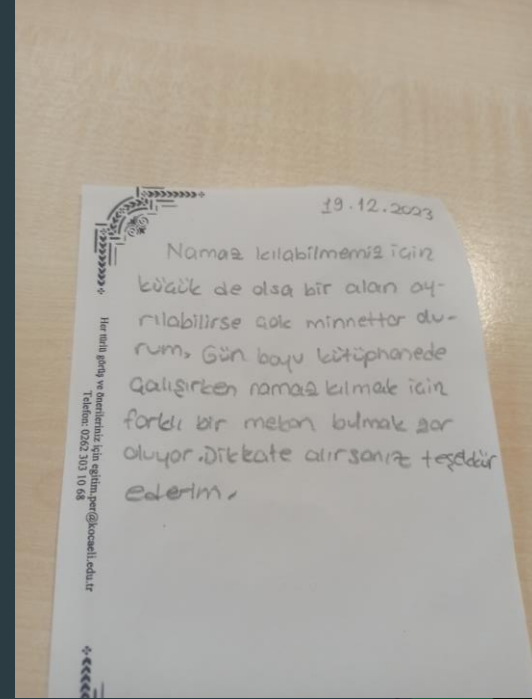 19.12.2023
Namaz kılabilmemiz için
küçük de olsa bir alan ay-
rılabilirse çok minnettar olu-
rum. Gün boyu kütüphanede
çalışırken namaz kılmak için
farklı bir mekan bulmak zor
oluyor. Dikkate alırsanız teşekkür
ederim.
Her türlü görüş ve önerileriniz için egitim.per@kocaeli.edu.tr
Telefon: 0262 303 10 68